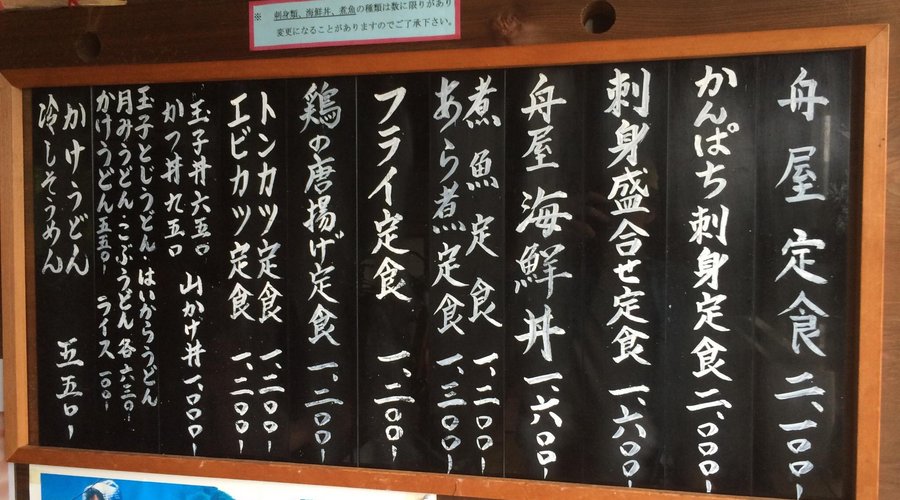 ※ 刺身類、海鮮丼、煮魚の種類は数に限りがあり
変更になることがありますのでご了承下さい。
舟屋定食 二、一〇〇-
かんぱち刺身定食 二、〇〇〇-
刺身盛合せ定食 一、六〇〇-
舟屋海鮮丼 一、六〇〇-
煮魚定食 一、二〇〇-
あら煮定食 一、三〇〇-
フライ定食 一、二〇〇-
鶏の唐揚げ定食 一、二〇〇-
トンカツ定食 一、二〇〇-
エビカツ定食 一、二〇〇-
玉子丼 六五〇 山かけ丼 一、〇〇〇-
かつ丼 九五〇
玉子とじうどん・はいからうどん
月みうどん・こぶうどん 各 六三〇-
かけうどん 五五〇- ライス 一〇〇-
かけうどん
冷しそうめん 五五〇-